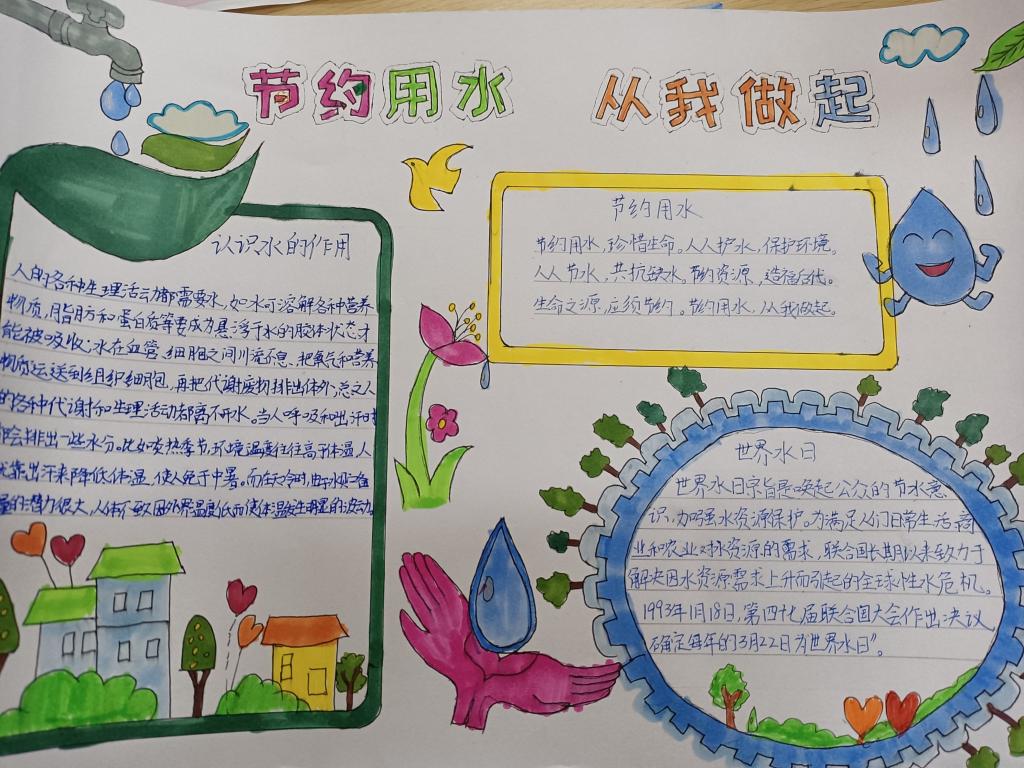 节约用水 从我做起
认识水的作用
人的各种生理活动都需要水,如水可溶解各种营养
物质,脂肪和蛋白质等要成为悬浮于水的胶体状态才
能被吸收;水在血管、细胞之间川流不息,把氧气和营养
物质运送到组织细胞,再把代谢废物排出体外,总之人
的各种代谢和生理活动都离不开水。当人呼吸和出汗时
都会排出一些水分。比如炎热季节,环境温度往往高于体温,人
就靠出汗来降低体温,使人免于中暑。而在天冷时,由于水贮备
量的潜力很大,人体不致因外界温度低而使体温发生明显的波动。
节约用水
节约用水,珍惜生命。人人护水,保护环境。
人人节水,共抗缺水。节约资源,造福后代。
生命之源,应须节约。节约用水,从我做起。
世界水日
世界水日宗旨是唤起公众的节水意
识,加强水资源保护。为满足人们日常生活、商
业和农业对水资源的需求,联合国长期以来致力于
解决因水资源需求上升而引起的全球性水危机。
1993年1月18日,第四十七届联合国大会作出决议,
确定每年的3月22日为世界水日”。